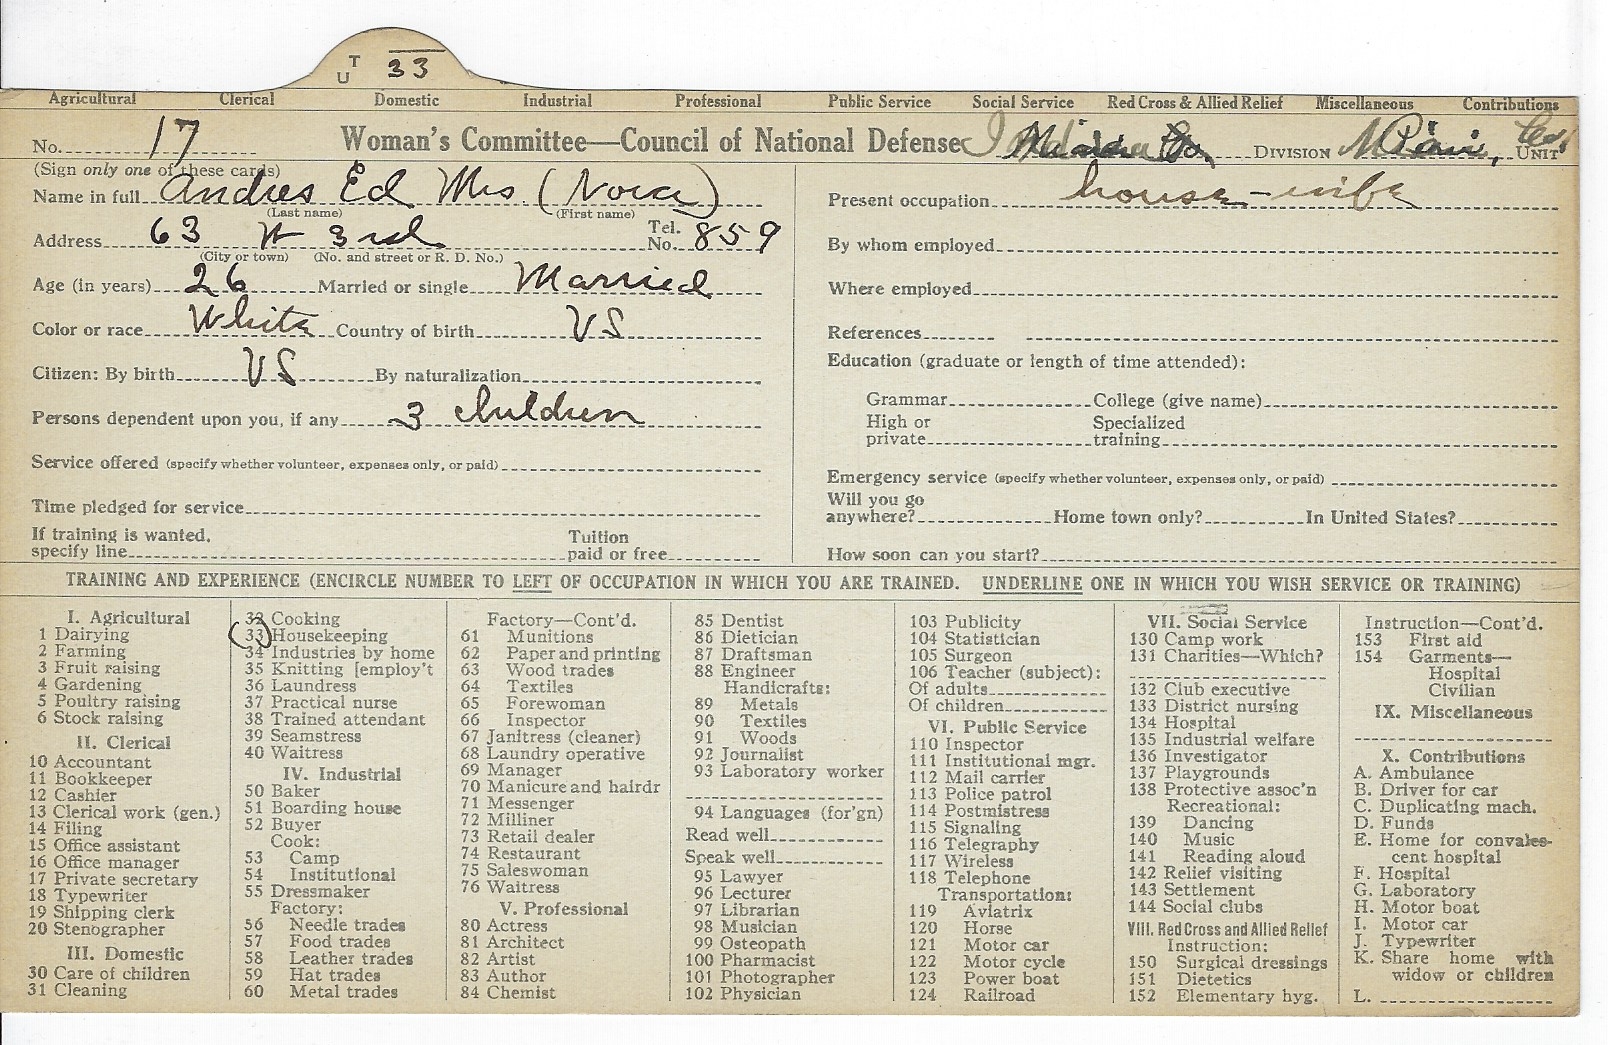 T
U 33
Agricultural Clerical Domestic Industrial Professional Public Service Social Service Red Cross & Allied Relief Miscellaneous Contributions
No. 17 Woman's Committee—Council of National Defense DIVISION Miami, Co. UNIT
(Sign only one of these cards)
Name in full Andres Ed Mrs. (Nora)
(Last name) (First name)
Address 63 W 3rd Tel. No. 859
(City or town) (No. and street or R. D. No.)
Age (in years) 26 Married or single Married
Color or race White Country of birth US
Citizen: By birth US By naturalization
Persons dependent upon you, if any 3 children
Service offered (specify whether volunteer, expenses only, or paid)
Time pledged for service
If training is wanted, specify line Tuition paid or free
Present occupation house-wife
By whom employed
Where employed
References
Education (graduate or length of time attended):
Grammar College (give name)
High or private Specialized training
Emergency service (specify whether volunteer, expenses only, or paid)
Will you go anywhere? Home town only? In United States?
How soon can you start?
TRAINING AND EXPERIENCE (ENCIRCLE NUMBER TO LEFT OF OCCUPATION IN WHICH YOU ARE TRAINED. UNDERLINE ONE IN WHICH YOU WISH SERVICE OR TRAINING)
I. Agricultural
1 Dairying
2 Farming
3 Fruit raising
4 Gardening
5 Poultry raising
6 Stock raising
II. Clerical
10 Accountant
11 Bookkeeper
12 Cashier
13 Clerical work (gen.)
14 Filing
15 Office assistant
16 Office manager
17 Private secretary
18 Typewriter
19 Shipping clerk
20 Stenographer
III. Domestic
30 Care of children
31 Cleaning
32 Cooking
33 Housekeeping
34 Industries by home
35 Knitting [employ't
36 Laundress
37 Practical nurse
38 Trained attendant
39 Seamstress
40 Waitress
IV. Industrial
50 Baker
51 Boarding house
52 Buyer
Cook:
53 Camp
54 Institutional
55 Dressmaker
Factory:
56 Needle trades
57 Food trades
58 Leather trades
59 Hat trades
60 Metal trades
Factory—Cont'd.
61 Munitions
62 Paper and printing
63 Wood trades
64 Textiles
65 Forewoman
66 Inspector
67 Janitress (cleaner)
68 Laundry operative
69 Manager
70 Manicure and hairdr
71 Messenger
72 Milliner
73 Retail dealer
74 Restaurant
75 Saleswoman
76 Waitress
V. Professional
80 Actress
81 Architect
82 Artist
83 Author
84 Chemist
85 Dentist
86 Dietician
87 Draftsman
88 Engineer
Handicrafts:
89 Metals
90 Textiles
91 Woods
92 Journalist
93 Laboratory worker
94 Languages (for'gn)
Read well
Speak well
95 Lawyer
96 Lecturer
97 Librarian
98 Musician
99 Osteopath
100 Pharmacist
101 Photographer
102 Physician
103 Publicity
104 Statistician
105 Surgeon
106 Teacher (subject):
Of adults
Of children
VI. Public Service
110 Inspector
111 Institutional mgr.
112 Mail carrier
113 Police patrol
114 Postmistress
115 Signaling
116 Telegraphy
117 Wireless
118 Telephone
Transportation:
119 Aviatrix
120 Horse
121 Motor car
122 Motor cycle
123 Power boat
124 Railroad
VII. Social Service
130 Camp work
131 Charities—Which?
132 Club executive
133 District nursing
134 Hospital
135 Industrial welfare
136 Investigator
137 Playgrounds
138 Protective assoc'n
Recreational:
139 Dancing
140 Music
141 Reading aloud
142 Relief visiting
143 Settlement
144 Social clubs
VIII. Red Cross and Allied Relief
Instruction:
150 Surgical dressings
151 Dietetics
152 Elementary hyg.
Instruction—Cont'd.
153 First aid
154 Garments—
Hospital
Civilian
IX. Miscellaneous
X. Contributions
A. Ambulance
B. Driver for car
C. Duplicating mach.
D. Funds
E. Home for convales-
cent hospital
F. Hospital
G. Laboratory
H. Motor boat
I. Motor car
J. Typewriter
K. Share home with
widow or children
L.